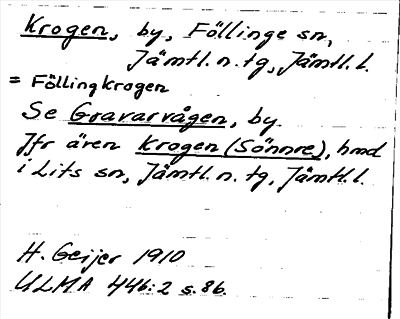 Krogen, by, Föllinge sn,
Jämtl. n. tg, Jämtl. l.
= Föllingkrogen
Se Gravarvågen, by
Jfr även Krogen (Sönnre), hmd
i Lits sn, Jämtl. n. tg, Jämtl. l.
H. Geijer 1910
ULMA 446:2 s. 86.